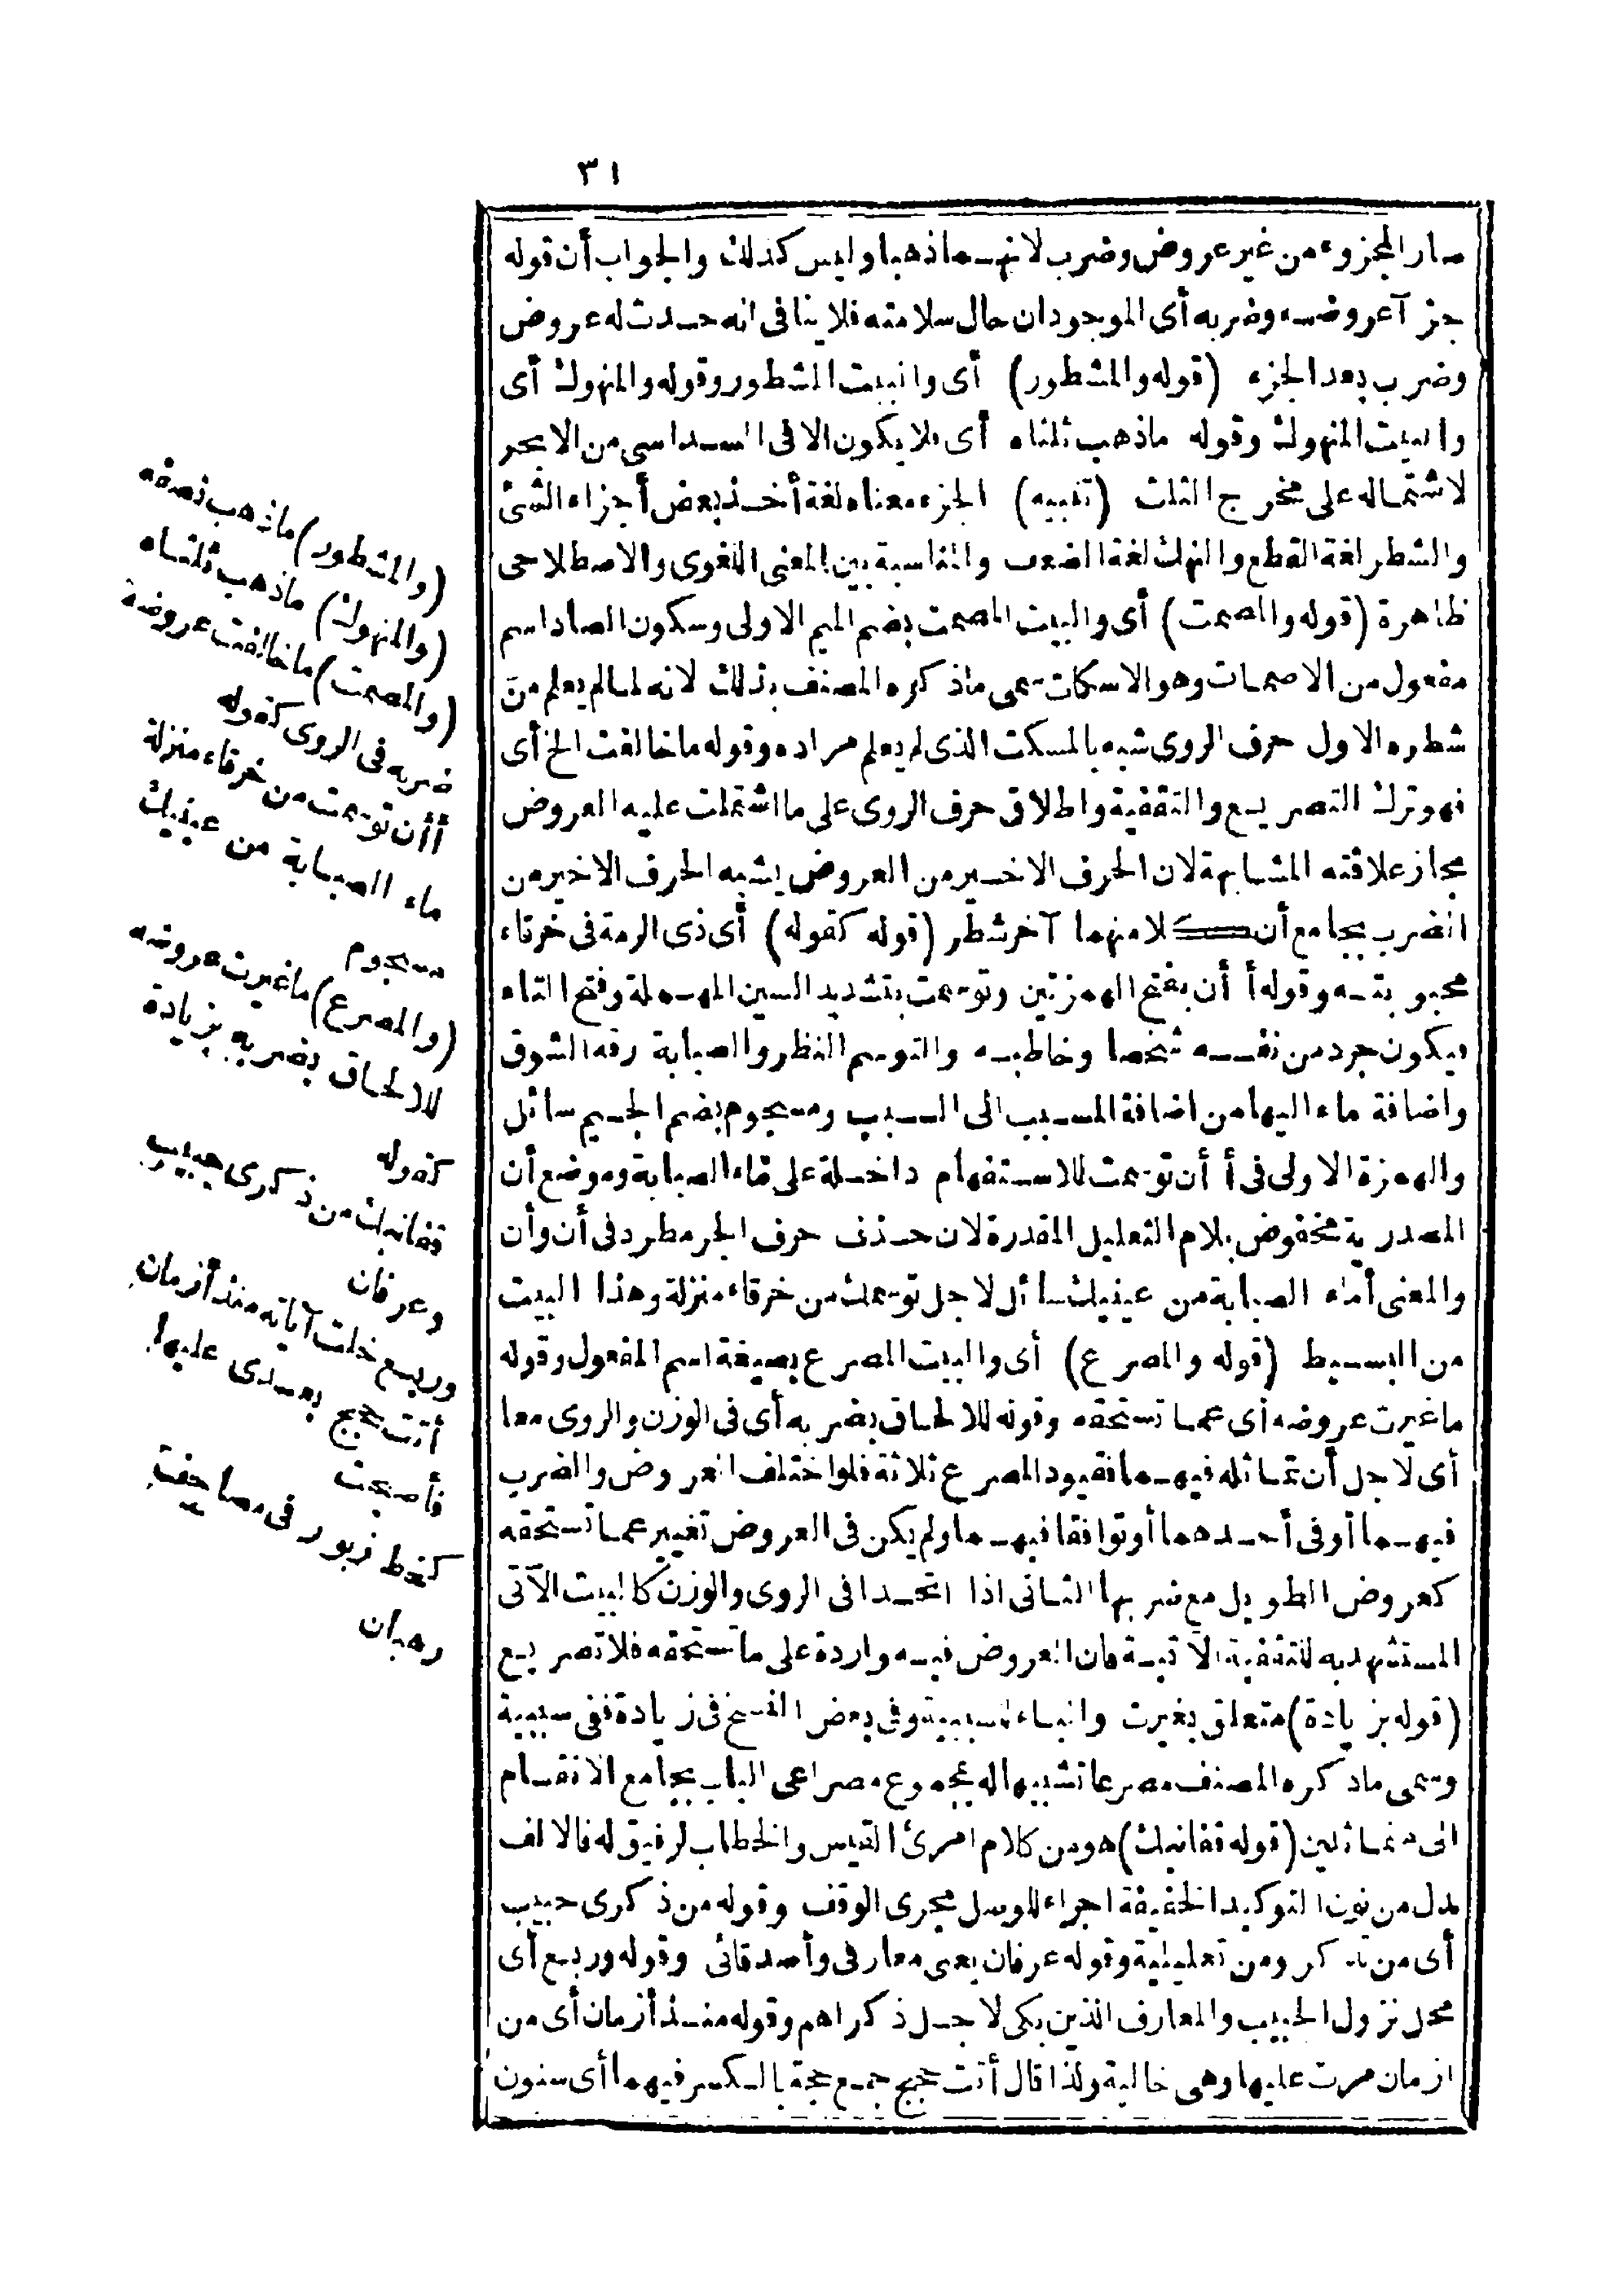 ٣١
صار المجزوء من غير عروض وضرب لانهما ذهبا وليس كذلك والجواب أن قوله
جزآ عروضه وضربه أى الموجودان حال سلامته فلا ينافى انه حدث له عروض
وضرب بعد الجزء (قوله والمشطور) أى والبيت المشطور وقوله والمنهوك أى
والبيت المنهوك وقوله ماذهب ثلثاه أى فلا يكون الا فى السداسى من الابحر
لاشتماله على مخرج الثلث (تنبيه) الجزء معناه لغة أخذ بعض أجزاء الشئ
والشطر لغة القطع والنهك لغة الضعف والمناسبة بين المعنى اللغوى والاصطلاحى
ظاهرة (قوله والمصمت) أى والبيت المصمت بضم الميم الاولى وسكون الصاد اسم
مفعول من الاصمات وهو الاسكات سمى ماذكره المصنف بذلك لانه لما لم يعلم من
شطره الاول حرف الروى شبه بالمسكت الذى لم يعلم مراده وقوله ما خالفت الخ أى
فهو ترك التصريع والتقفية واطلاق حرف الروى على ما اشتملت عليه العروض
مجاز علاقته المشابهة لان الحرف الاخير من العروض يشبه الحرف الاخير من
الضرب بجامع أن كلا منهما آخر شطر (قوله كقوله) أى ذى الرمة فى خرقاء
محبوبته وقوله أ أن بفتح الهمزتين وتوسمت بتشديد السين المهملة وفتح التاء
فيكون جرد من نفسه شخصا وخاطبه والتوسم النظر والصبابة رقة الشوق
واضافة ماء اليها من اضافة المسبب الى السبب ومسجوم بضم الجيم سائل
والهمزة الاولى فى أ أن توسمت للاستفهام داخلة على ماء الصبابة وموضع أن
المصدرية مخفوض بلام التعليل المقدرة لان حذف حرف الجر مطرد فى أن وأن
والمعنى أماء الصبابة من عينيك سائل لاجل توسمك من خرقاء منزلة وهذا البيت
من البسيط (قوله والمصرع) أى والبيت المصرع بصيغة اسم المفعول وقوله
ما غيرت عروضه أى عما تستحقه وقوله للالحاق بضربه أى فى الوزن والروى معا
أى لاجل أن تماثله فيهما فقيود المصرع ثلاثة فلو اختلف العروض والضرب
فيهما أو فى أحدهما أو توافقا فيهما ولم يكن فى العروض تغيير عما تستحقه
كعروض الطويل مع ضربها الثانى اذا اتحدا فى الروى والوزن كالبيت الآتى
المستشهد به للتقفية الآتية فان العروض فيه واردة على ما تستحقه فلا تصريع
(قوله بزيادة) متعلق بغيرت والباء للسببية وفى بعض النسخ فى زيادة ففى سببية
وسمى ماذكره المصنف مصرعا تشبيها له بمجموع مصراعى الباب بجامع الانقسام
الى متماثلين (قوله قفانبك) هو من كلام امرئ القيس والخطاب لرفيق له فالالف
بدل من نون التوكيد الخفيفة اجراء للوصل مجرى الوقف وقوله من ذكرى حبيب
أى من تذكر ومن تعليلية وقوله عرفان يعنى معارفى وأصدقائى وقوله وربع أى
محل نزول الحبيب والمعارف الذين بكى لاجل ذكراهم وقوله منذ أزمان أى من
ازمان مرت عليها وهى خالية ولذا قال أتت حجج جمع حجة بالكسر فيهما أى سنون
(والمشطور) ماذهب نصفه
(والمنهوك) ماذهب ثلثاه
(والمصمت) ما خالفت عروضه
ضربه فى الروى كقوله
أأن توسمت من خرقاء منزلة
ماء الصبابة من عينيك
مسجوم
(والمصرع) ما غيرت عروضه
للالحاق بضربه بزيادة
كقوله
قفانبك من ذكرى حبيب
وعرفان
وربع خلت آياته منذ أزمان
أتت حجج بعدى عليها
فأصبحت
كخط زبور فى مصاحف
رهبان